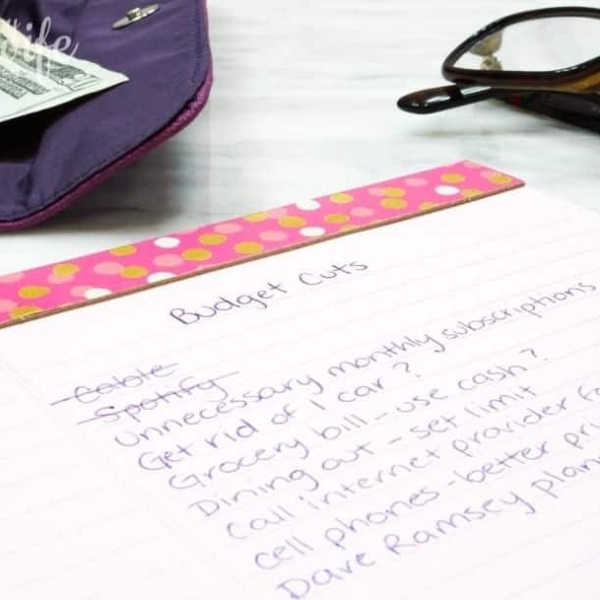 life
Budget Cuts
Cable
Spotify
Unnecessary monthly subscriptions
Get rid of 1 car?
Grocery bill - use cash?
Dining out - set limit
Call internet provider
cell phones - better
Dave Ramsey plan